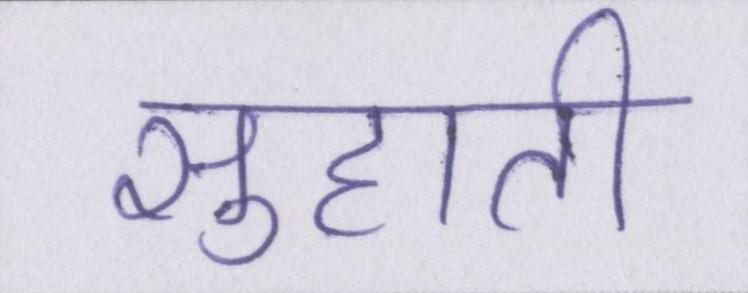 सुहाती